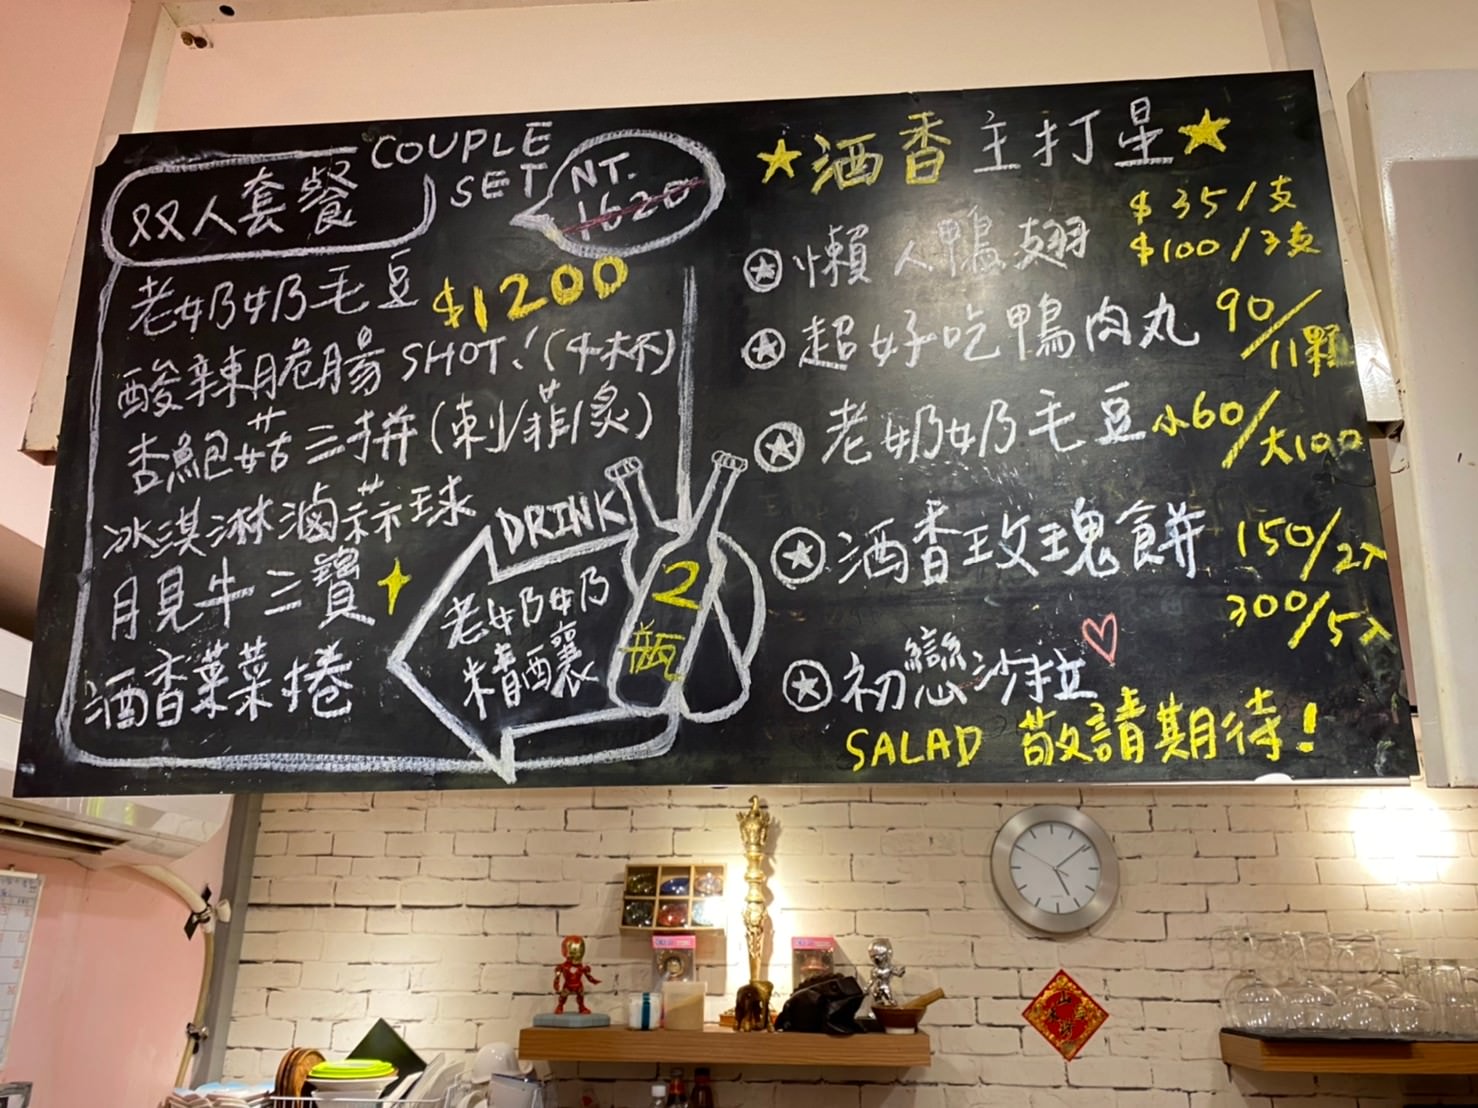 双人套餐 COUPLE SET
NT. 1620
$1200
老奶奶毛豆
酸辣脆腸 SHOT!(4杯)
杏鮑菇三拼(刺/菲/炙)
冰淇淋滷蒜球
月見牛三寶
酒香葉菜捲
DRINK
老奶奶
精釀
2
瓶
酒香主打星
懶人鴨翅 $35/支
$100/3支
超好吃鴨肉丸 90/11顆
老奶奶毛豆 小60/大100
酒香玫瑰餅 150/2
300/5
初戀沙拉
SALAD 敬請期待!